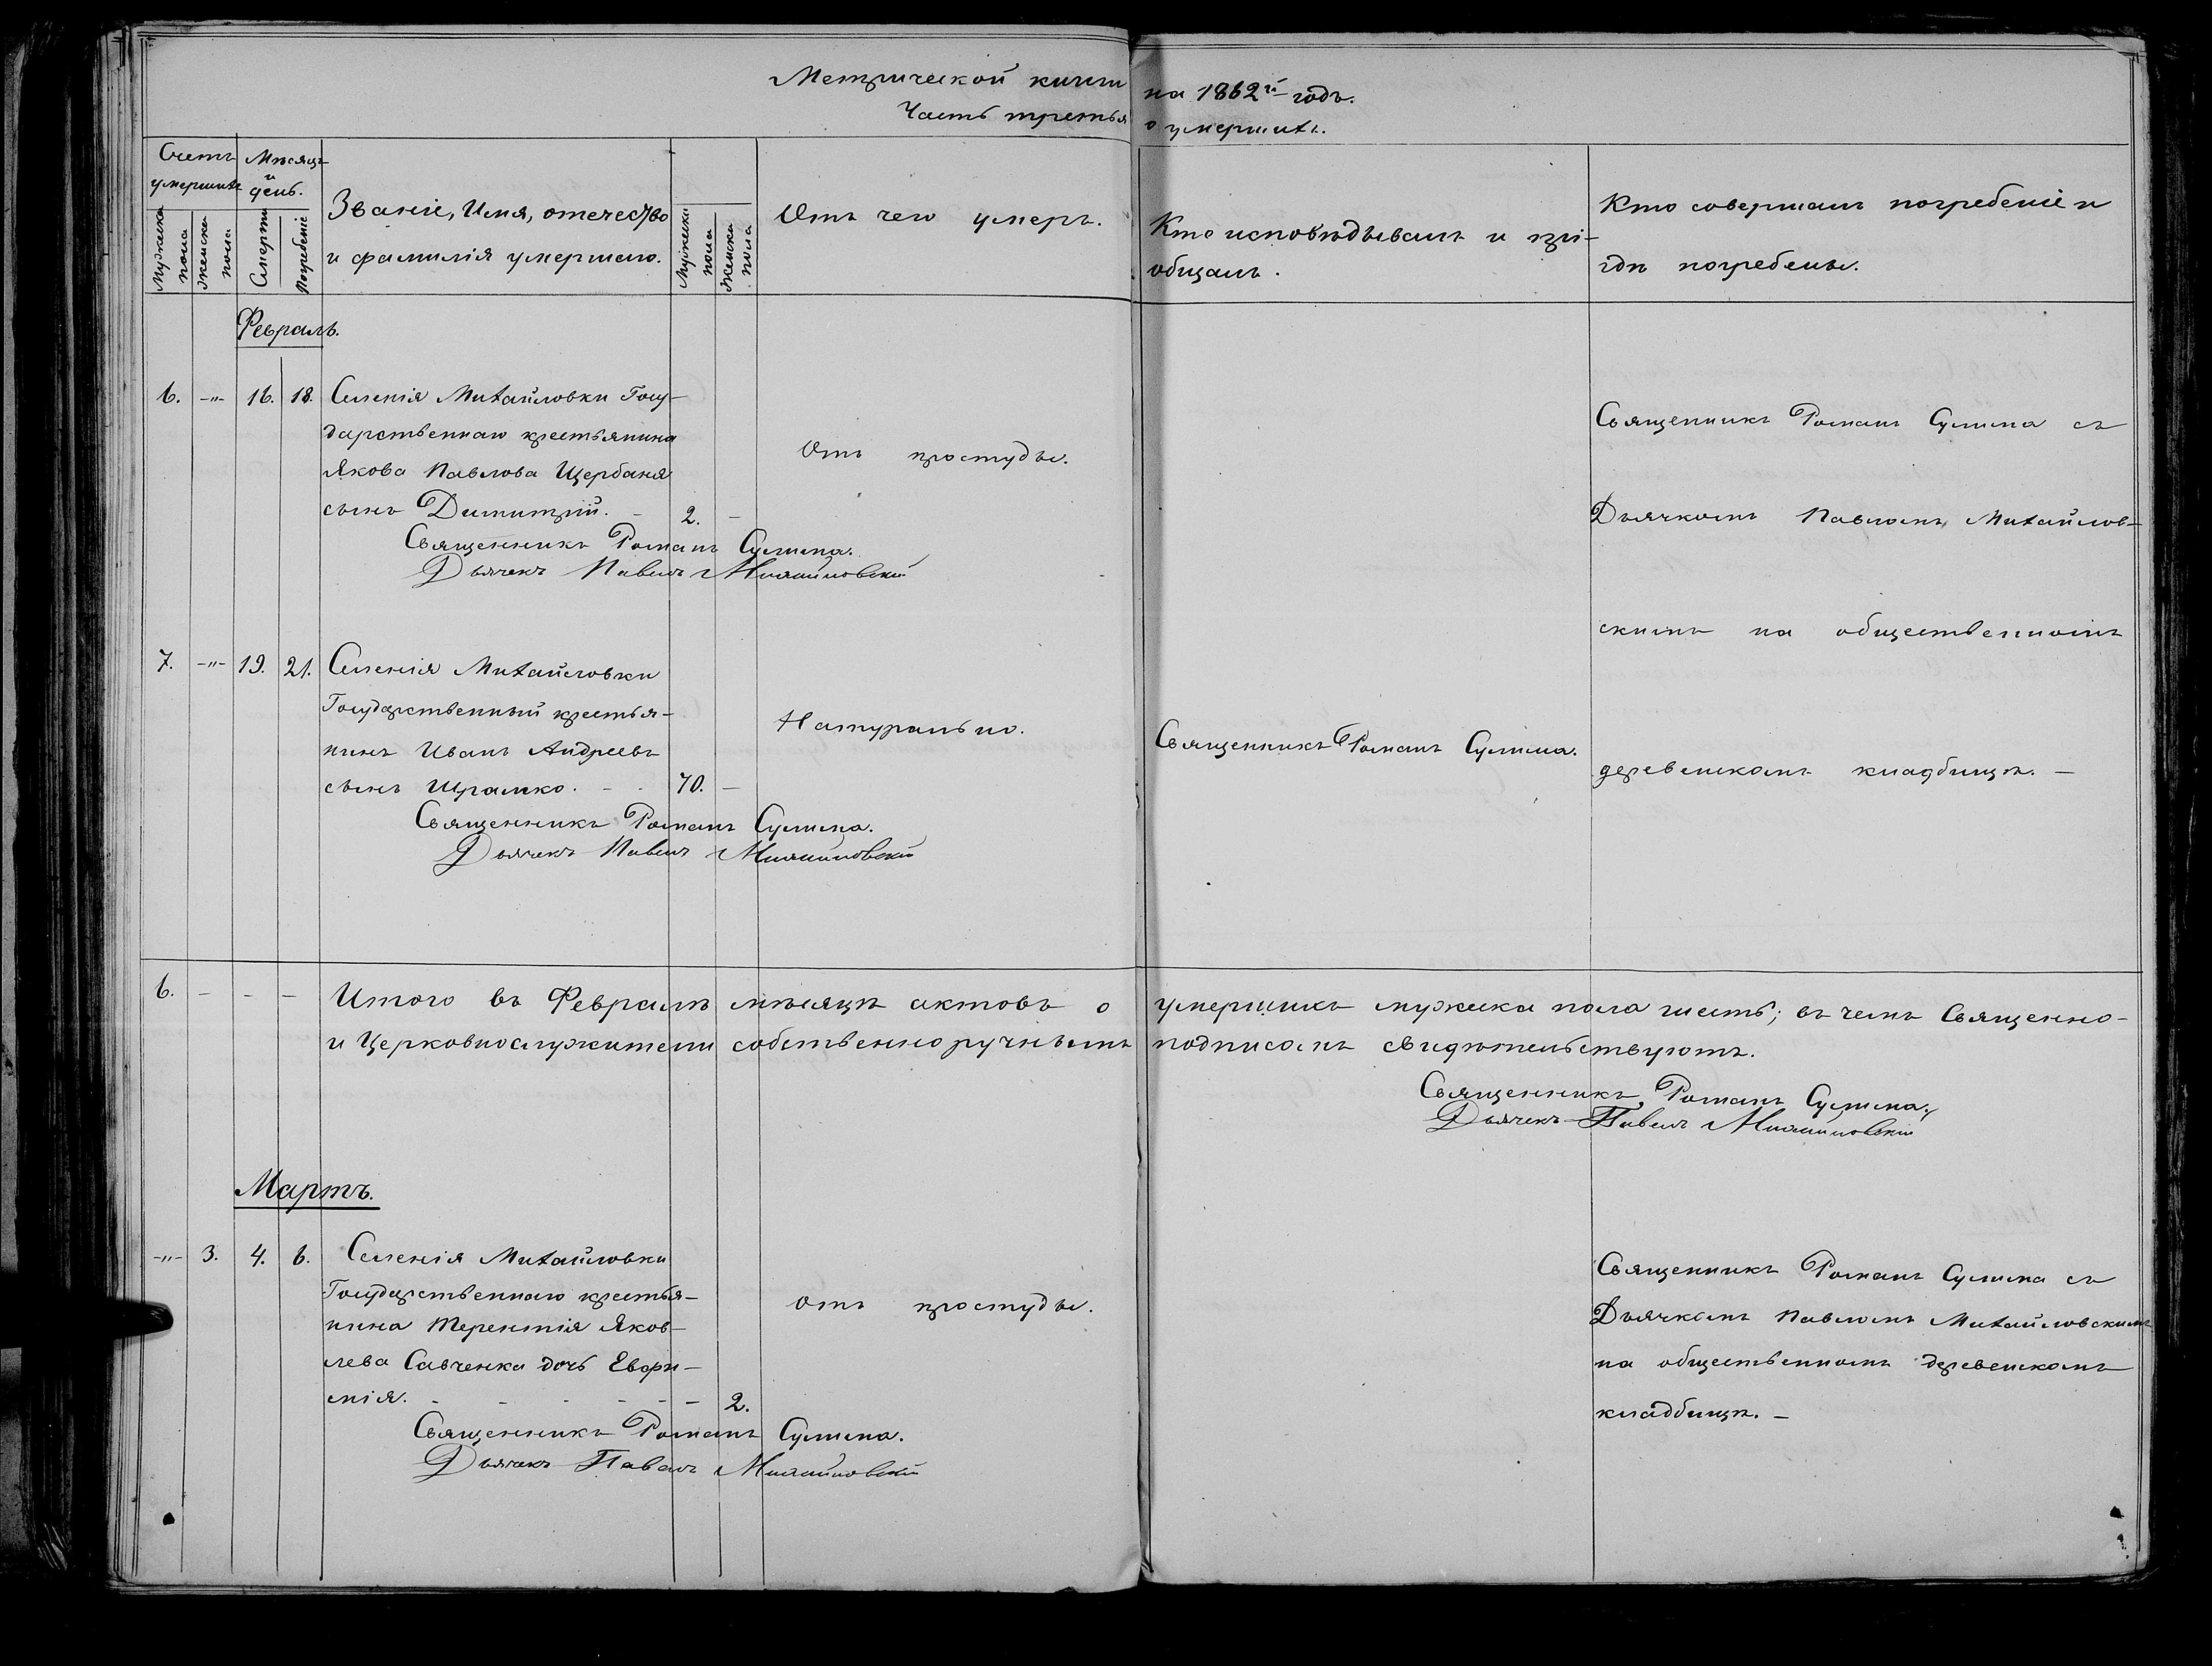 Метрической книги на 1862й годъ.
Часть третья о умершихъ.
Счетъ умершихъ
Мѣсяцъ и день.
Мужеска пола
Женска пола
Смерти
Погребенiе
Званiе, Имя, отечество
и фамилiя умершаго.
Мужеска пола
Женска пола
Отъ чего умеръ.
Кто исповѣдывалъ и прi-
общалъ.
Кто совершалъ погребенiе и
гдѣ погребены.
Февраль.
6. -"- 16. 18. Селенiя Михайловки Госу-
дарственнаго крестьянина
Якова Павлова Щербаня
сынъ Димитрiй. - 2. -
Отъ простуды.
Священникъ Романъ Сулима.
Дьячекъ Павелъ Михайловскiй
Священникъ Романъ Сулима съ
Дьячкомъ Павломъ Михайлов-
скимъ на общественномъ
деревенскомъ кладбищѣ. -
7. -"- 19. 21. Селенiя Михайловки
Государственный крестья-
нинъ Иванъ Андреевъ
сынъ Шрамко. - - 70. -
Натурально.
Священникъ Романъ Сулима.
Священникъ Романъ Сулима.
Дьячекъ Павелъ Михайловскiй
6. - - - Итого въ Февралѣ мѣсяцѣ актовъ о умершихъ мужеска пола шесть; въ чемъ Священно-
и Церковнослужители собственноручнымъ подписомъ свидѣтельствуютъ.
Священникъ Романъ Сулима.
Дьячекъ Павелъ Михайловскiй
Мартъ.
-"- 3. 4. 6. Селенiя Михайловки
Государственнаго крестья-
нина Терентiя Яков-
лева Савченка дочь Евфи-
мiя. - - - - - - 2.
Отъ простуды.
Священникъ Романъ Сулима.
Дьячекъ Павелъ Михайловскiй
Священникъ Романъ Сулима съ
Дьячкомъ Павломъ Михайловскимъ
на общественномъ деревенскомъ
кладбищѣ. -